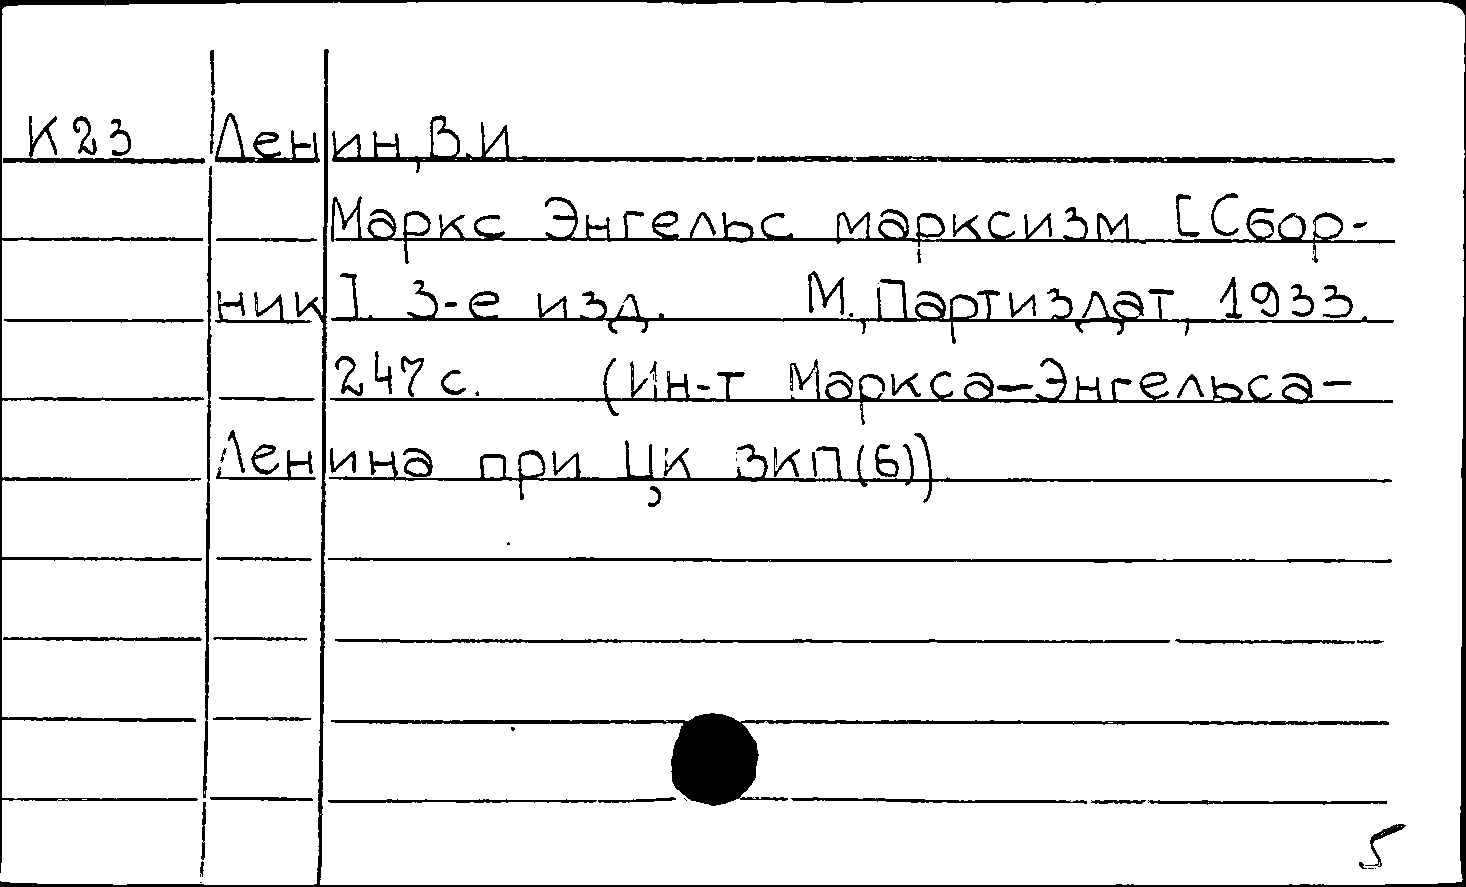 К23 Ленин, В.И
Маркс Энгельс марксизм [Сбор-
ник]. 3-е изд. М., Партиздат, 1933.
247 с. (Ин-т Маркса-Энгельса-
Ленина при ЦК ВКП(б))
5